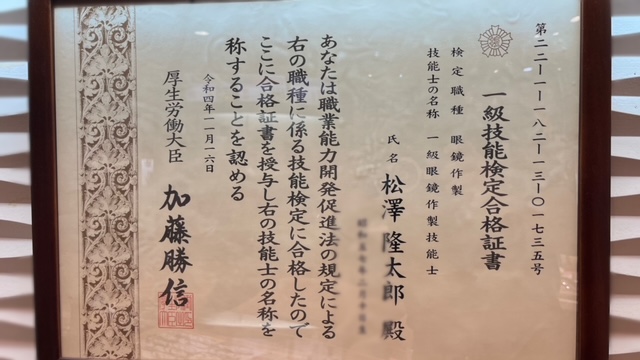 第二二-一-一八二-一三-〇一七三五号
一級技能検定合格証書
検定職種 眼鏡作製
技能士の名称 一級眼鏡作製技能士
氏名 松澤隆太郎 殿
あなたは職業能力開発促進法の規定による
右の職種に係る技能検定に合格したので
ここに合格証書を授与し右の技能士の名称を
称することを認める
令和四年一一月一六日
厚生労働大臣 加藤勝信